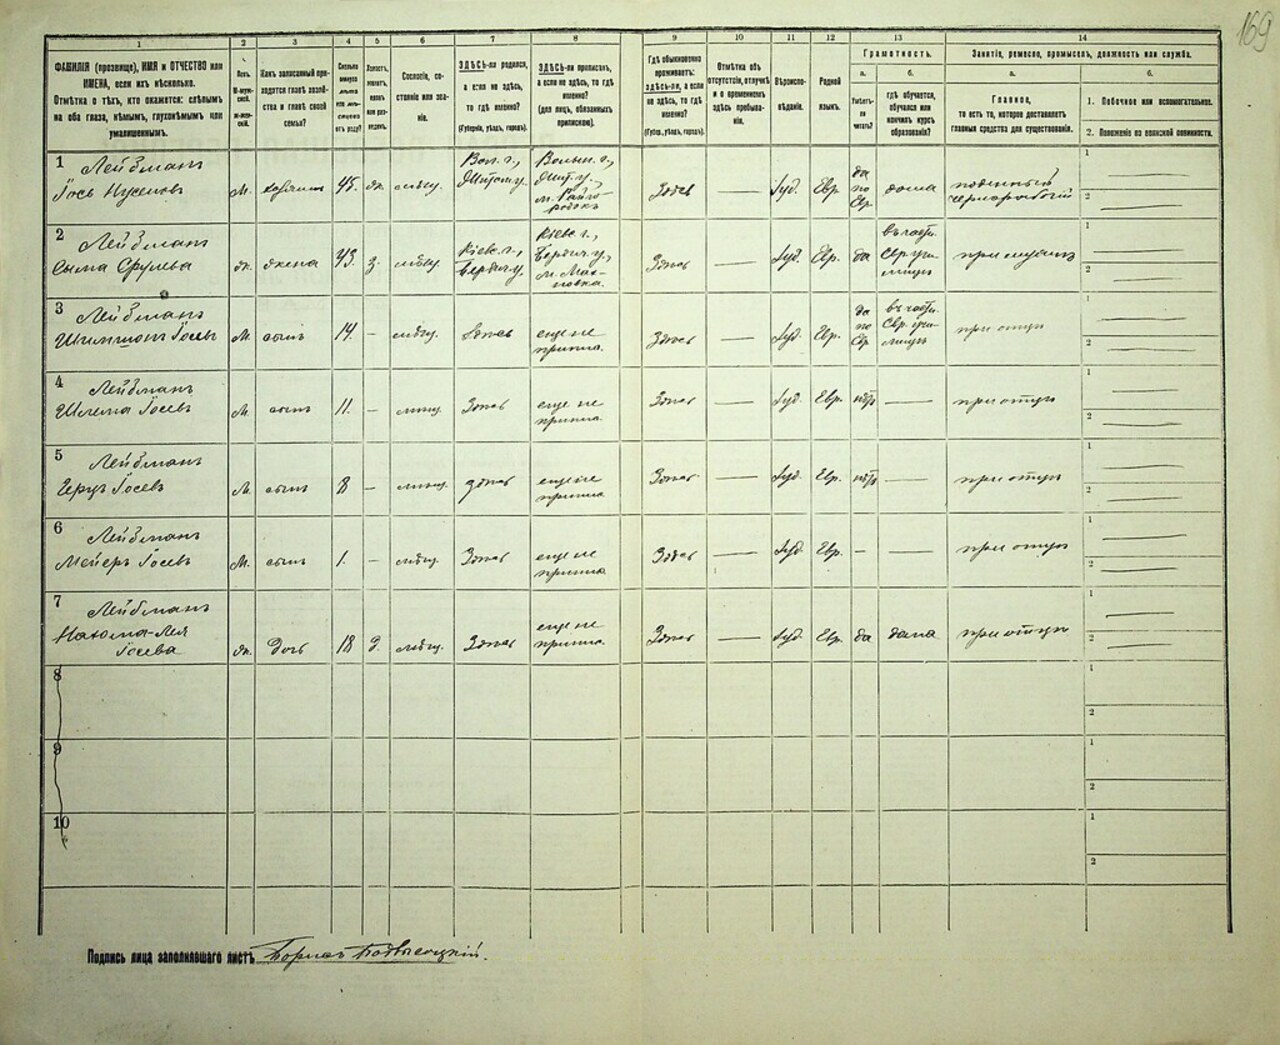 169
1
2
3
4
5
6
7
8
9
10
11
12
13
14
ФАМИЛІЯ (прозвище), ИМЯ и ОТЧЕСТВО или
ИМЕНА, если ихъ нѣсколько.
Отмѣтка о тѣхъ, кто окажется: слѣпымъ
на оба глаза, нѣмымъ, глухонѣмымъ или
умалишеннымъ.
Полъ.
М-муж-
ской.
Ж-жен-
скій.
Какъ записанный при-
ходится главѣ хозяй-
ства и главѣ своей
семьи?
Сколько
минуло
лѣтъ
или мѣ-
сяцевъ
отъ роду?
Холостъ,
женатъ,
вдовъ
или раз-
веденъ.
Сословіе, со-
стояніе или зва-
ніе.
ЗДѢСЬ-ли родился,
а если не здѣсь,
то гдѣ именно?
(Губернія, уѣздъ, городъ).
ЗДѢСЬ-ли приписанъ,
а если не здѣсь, то гдѣ
именно?
(для лицъ, обязанныхъ
припискою).
Гдѣ обыкновенно
проживаетъ:
здѣсь-ли, а если
не здѣсь, то гдѣ
именно?
(Губер., уѣздъ, городъ).
Отмѣтка объ
отсутствіи, отлучкѣ
и о временномъ
здѣсь пребыва-
ніи.
Вѣроиспо-
вѣданіе.
Родной
языкъ.
Грамотность.
а.
б.
Умѣетъ-
ли
читать?
гдѣ обучается,
обучался или
кончилъ курсъ
образованія?
Занятіе, ремесло, промыселъ, должность или служба.
а.
б.
Главное,
то есть то, которое доставляетъ
главныя средства для существованія.
1. Побочное или вспомогательное.
2. Положеніе по воинской повинности.
1
Лейбманъ
Іось Нусемовъ
М.
хозяинъ
45.
ж.
мѣщ.
Вол. г.,
Жит. у.
Волын. г.,
Жит. у.,
м. Райго-
родокъ
Здѣсь
Іуд.
Евр.
да
по
Евр.
дома
поденный
чернорабочій
1
2
2
Лейбманъ
Сыма Срулева
ж.
жена
43.
з.
мѣщ.
Кіевс. г.,
Бердич. у.
Кіевс. г.,
Бердич. у,
м. Мах-
новка.
Здѣсь
Іуд.
Евр.
да
въ частн.
Евр. учи-
лищѣ
при мужѣ
1
2
3
Лейбманъ
Шимшонъ Іосевъ
М.
сынъ
14.
мѣщ.
Здѣсь
еще не
приписа.
Здѣсь
Іуд.
Евр.
да
по
Евр
въ частн.
Евр. учи-
лищѣ
при отцѣ
1
2
4
Лейбманъ
Шлема Іосевъ
М.
сынъ
11.
мѣщ.
Здѣсь
еще не
приписа.
Здѣсь
Іуд.
Евр.
нѣтъ
при отцѣ
1
2
5
Лейбманъ
Герцъ Іосевъ
М.
сынъ
8
мѣщ.
здѣсь
еще не
приписа
Здѣсь
Іуд.
Евр.
нѣтъ
при отцѣ
1
2
6
Лейбманъ
Мейеръ Іосевъ
М.
сынъ
1.
мѣщ.
Здѣсь
еще не
приписа
Здѣсь
Іуд.
Евр.
при отцѣ
1
2
7
Лейбманъ
Лея
Іосева
ж.
Дочь
18
д.
мѣщ.
Здѣсь
еще не
приписа.
Здѣсь
Іуд.
Евр.
да
дома
при отцѣ
1
2
8
1
2
9
1
2
10
1
2
Подпись лица заполнявшаго листъ Борисъ